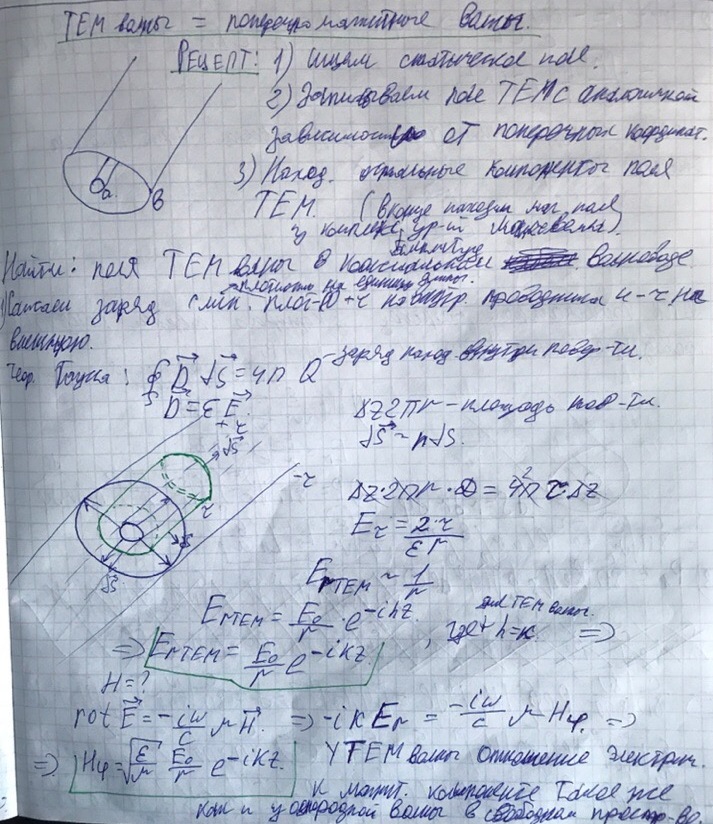 TEM волны = поперечно магнитные волны.
РЕЦЕПТ: 1) Ищем статическое поле.
2) Записываем поле TEM с аналогичной
зависимостью от поперечных координат.
3) Наход. остальные компоненты поля
TEM. (в конце находим маг. поля
из комплекс. ур-ий Максвелла)
a
b
Найти: поля TEM волны в коаксиальном волноводе.
1) Сажаем заряд с лин. плот-ю +τ на внутр. проводника и -τ на
плотность на единицу длины.
внешнюю.
Теор. Гаусса: ∮ D⃗ dS⃗ = 4π Q - заряд наход. внутри повер-ти.
S
D⃗ = ε E⃗.
Δz 2πr - площадь пов-ти.
dS⃗ = n dS.
+τ
dS⃗
-τ
Δz·2πr·D = 4π τ Δz
E_r = 2·τ / εr
E_rTEM ~ 1/r
E_rTEM = E₀/r · e^{-ihz}, где h=k. ⇒
для TEM волны.
⇒ E_rTEM = E₀/r e^{-ikz}
H = ?
rot E⃗ = -iω/c μ H⃗. ⇒ -ik E_r = -iω/c μ H_φ. ⇒
⇒ H_φ = √(ε/μ) E₀/r e^{-ikz}.
У TEM волны отношение электрич.
к магнит. компоненте такое же
как и у однородной волны в свободном простр-ве.